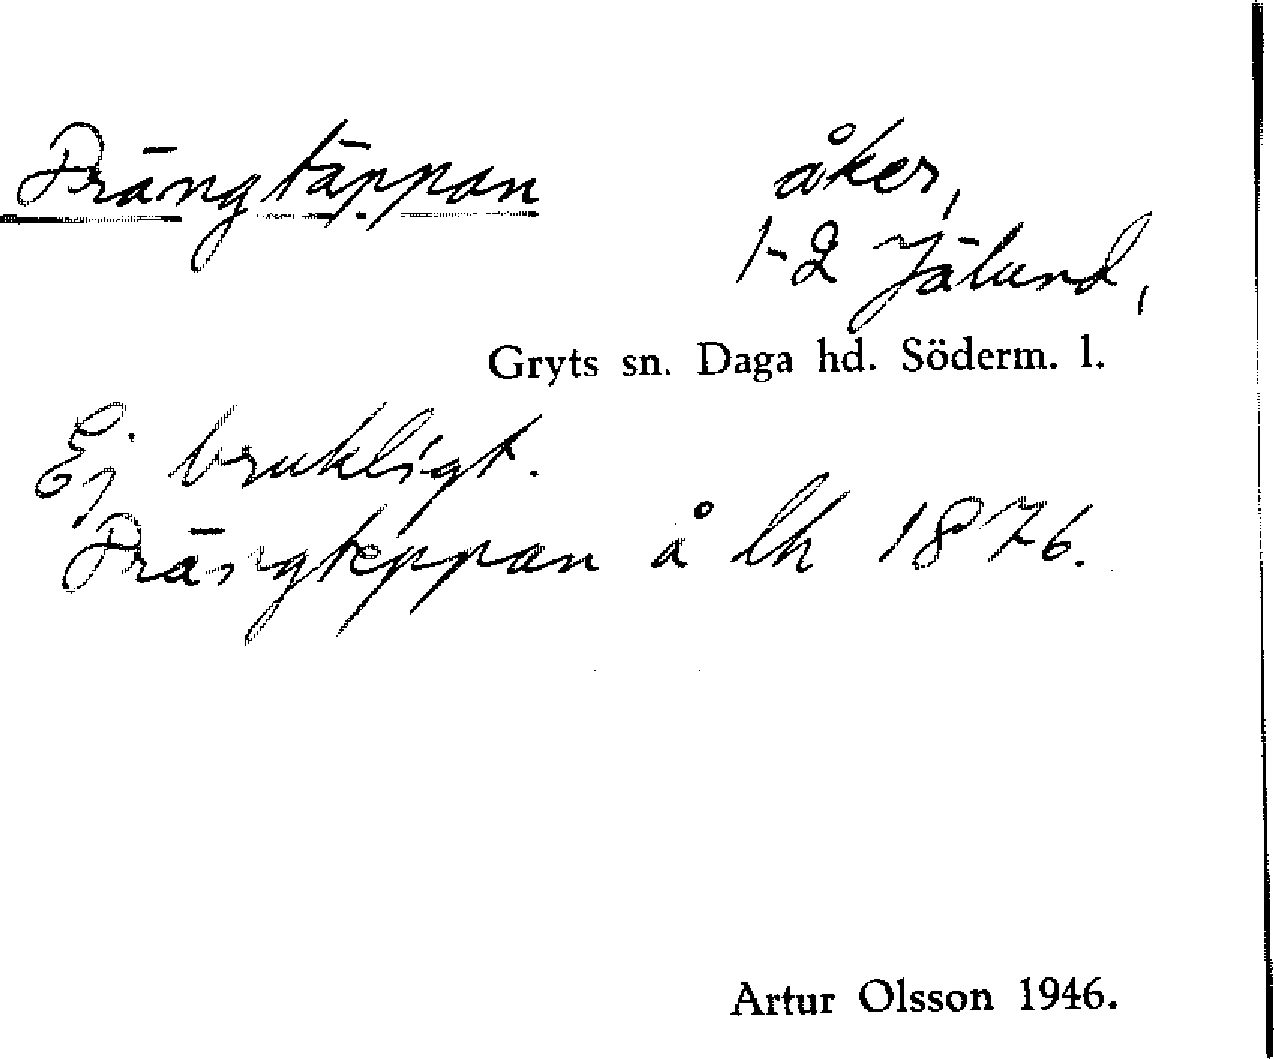 Drängtäppan åker,
1-2 Jälund,
Gryts sn. Daga hd. Söderm. l.
Ej brukligt.
Drängteppan å lh 1876.
Artur Olsson 1946.